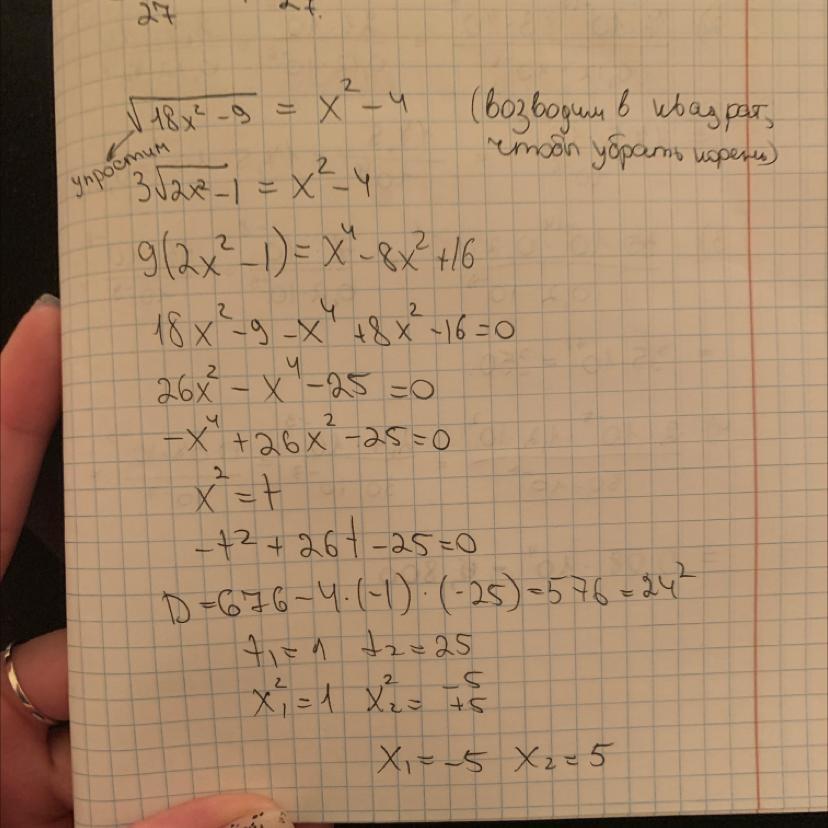 27 27.
√18x² - 9 = x² - 4 (возводим в квадрат,
упростим чтобы убрать корень)
3√2x² - 1 = x² - 4
9(2x² - 1) = x⁴ - 8x² + 16
18x² - 9 - x⁴ + 8x² - 16 = 0
26x² - x⁴ - 25 = 0
-x⁴ + 26x² - 25 = 0
x² = t
-t² + 26t - 25 = 0
D = 676 - 4·(-1)·(-25) = 576 = 24²
t₁ = 1 t₂ = 25
x₁² = 1 x₂² = -5
+5
x₁ = -5 x₂ = 5